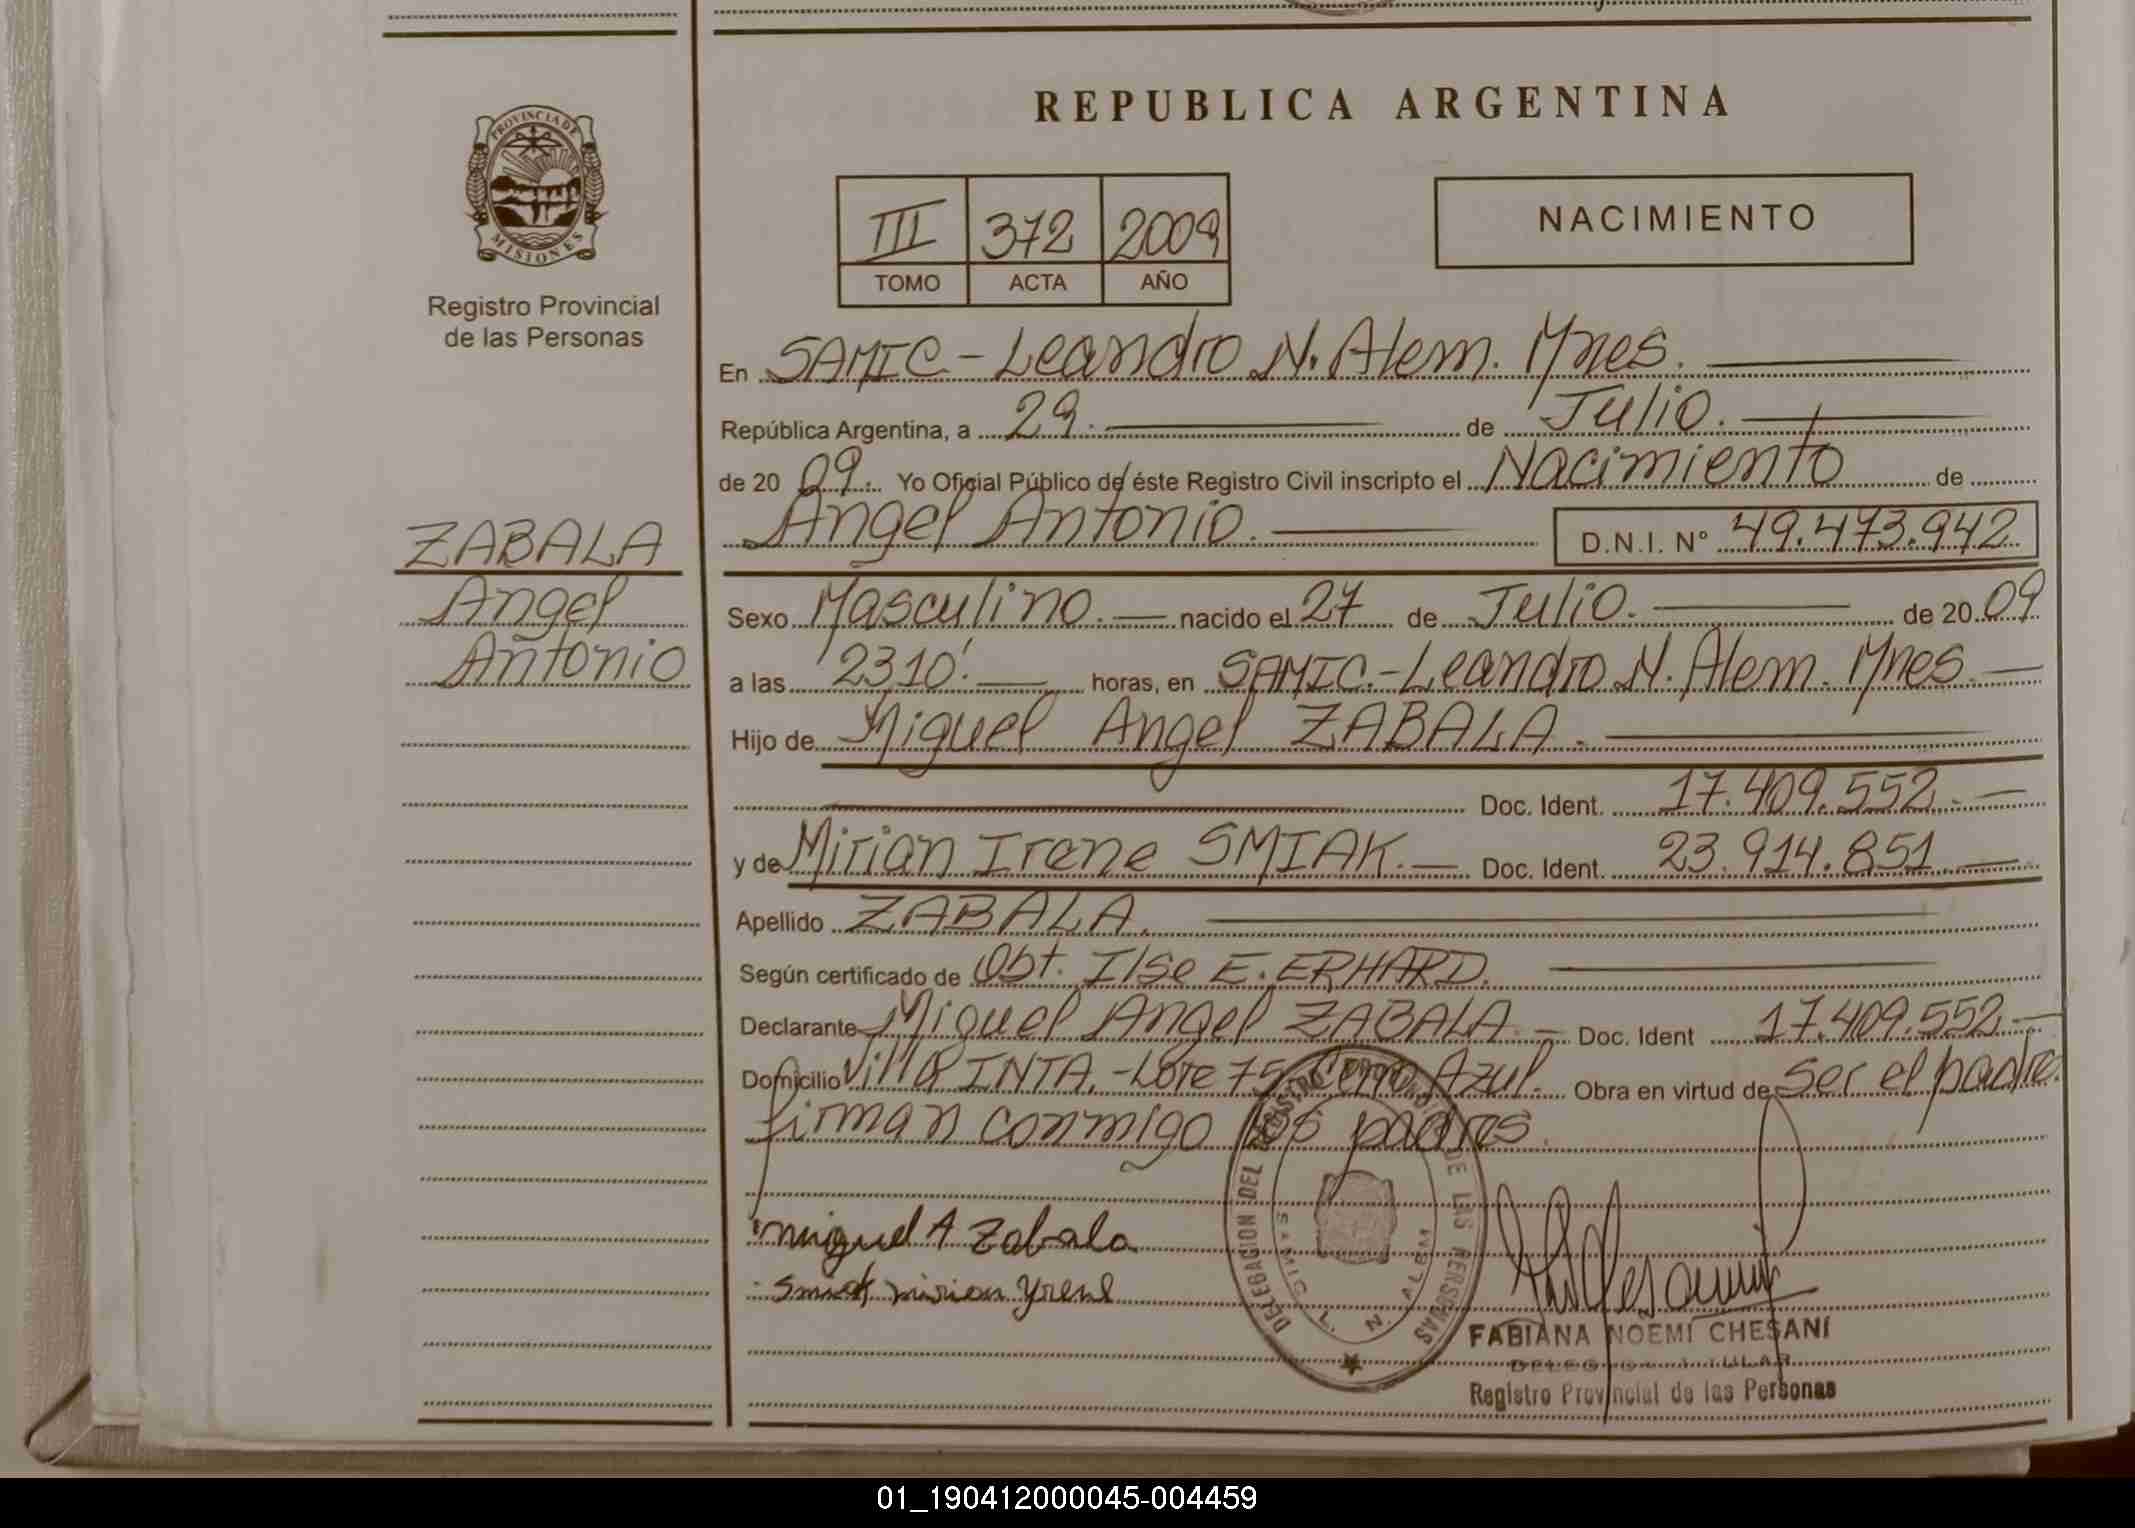 REPUBLICA ARGENTINA
PROVINCIA DE
MISIONES
Registro Provincial
de las Personas
III 372 2009
TOMO ACTA AÑO
NACIMIENTO
En SAMIC - Leandro N. Alem. Mnes.
República Argentina, a 29. de Julio.
de 20 09. Yo Oficial Público de éste Registro Civil inscripto el Nacimiento de
Angel Antonio. D.N.I. N° 49.473.942
ZABALA
Angel
Antonio
Sexo Masculino. nacido el 27 de Julio. de 20 09
a las 2310'. horas, en SAMIC.-Leandro N. Alem. Mnes.
Hijo de Miguel Angel ZABALA.
Doc. Ident. 17.409.552.
y de Mirian Irene SMIAK. Doc. Ident. 23.914.851
Apellido ZABALA.
Según certificado de Obt. Ilse E. ERHARD.
Declarante Miguel Angel ZABALA. Doc. Ident 17.409.552.
Domicilio Villa INTA.-Lote 75 Cerro Azul. Obra en virtud de Ser el padre.
firman conmigo los padres.
miguel A Zabala
Smiak mirian yrene
DELEGACION DEL REGISTRO PROVINCIAL DE LAS PERSONAS
SAMIC L. N. ALEM
FABIANA NOEMI CHESANI
Registro Provincial de las Personas
01_190412000045-004459